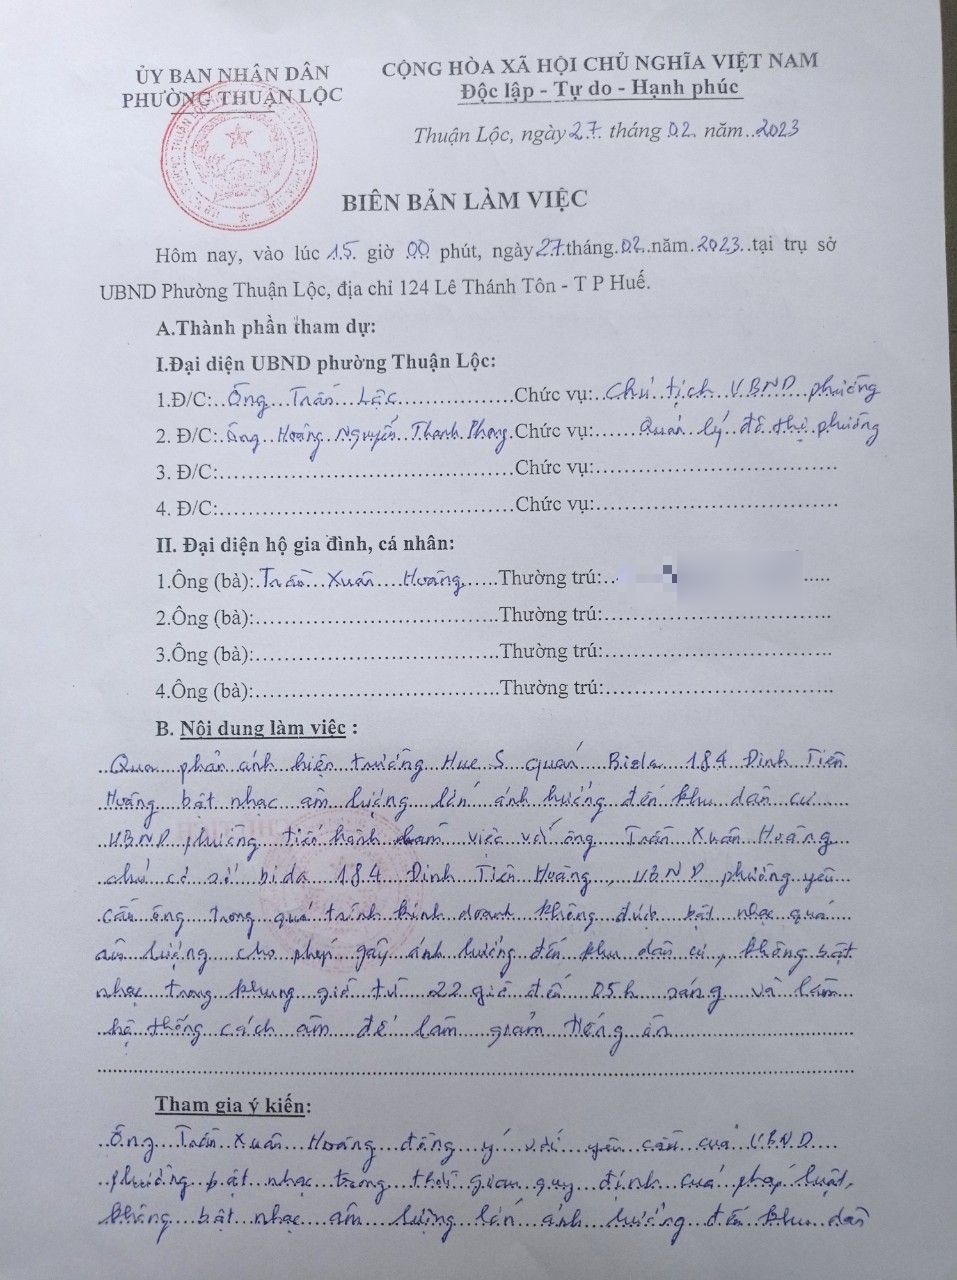 ỦY BAN NHÂN DÂN
PHƯỜNG THUẬN LỘC
CỘNG HÒA XÃ HỘI CHỦ NGHĨA VIỆT NAM
Độc lập - Tự do - Hạnh phúc
Thuận Lộc, ngày 27. tháng 02. năm..2023
BIÊN BẢN LÀM VIỆC
Hôm nay, vào lúc 15. giờ 00 phút, ngày 27.tháng.02.năm.2023..tại trụ sở
UBND Phường Thuận Lộc, địa chỉ 124 Lê Thánh Tôn - T P Huế.
A.Thành phần tham dự:
I.Đại diện UBND phường Thuận Lộc:
1.Đ/C:..Ông...Trần...Lộc..................Chức vụ:..Chủ tịch UBND phường
2. Đ/C:.Ông..Hoàng Nguyễn Thanh Phong.Chức vụ:......Quản lý đô thị phường
3. Đ/C:....................................Chức vụ:...............................
4. Đ/C:....................................Chức vụ:...............................
II. Đại diện hộ gia đình, cá nhân:
1.Ông (bà):.Trần...Xuân...Hoàng.....Thường trú:..
2.Ông (bà):..............................Thường trú:.............................
3.Ông (bà):..............................Thường trú:.............................
4.Ông (bà):..............................Thường trú:.............................
B. Nội dung làm việc :
Qua phản ánh hiện trường Hue S quán Bida 184 Đinh Tiên
Hoàng bật nhạc âm lượng lớn ảnh hưởng đến khu dân cư
UBND phường tiến hành làm việc với ông Trần Xuân Hoàng
chủ cơ sở bida 184 Đinh Tiên Hoàng, UBND phường yêu
cầu ông trong quá trình kinh doanh không được bật nhạc quá
âm lượng cho phép gây ảnh hưởng đến khu dân cư, không bật
nhạc trong khung giờ từ 22 giờ đến 05h sáng và làm
hệ thống cách âm để làm giảm tiếng ồn
Tham gia ý kiến:
Ông Trần Xuân Hoàng đồng ý với yêu cầu của UBND
phường bật nhạc trong thời gian quy định của pháp luật,
không bật nhạc âm lượng lớn ảnh hưởng đến khu dân